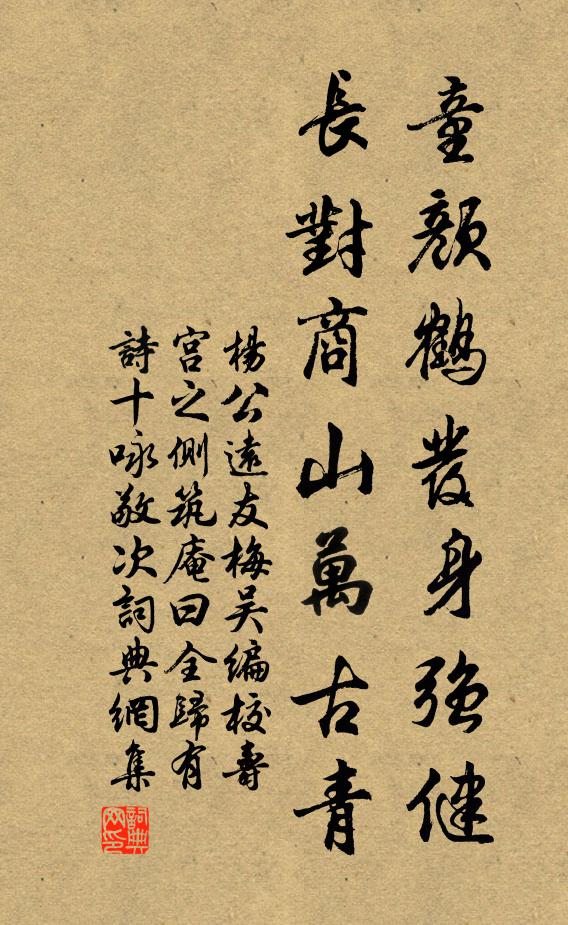 童顏鶴發身強健
長對商山萬古青
楊公遠友梅吳編校壽
宮之側筑庵曰全歸有
詩十咏敬次詞典網集
詞典網印